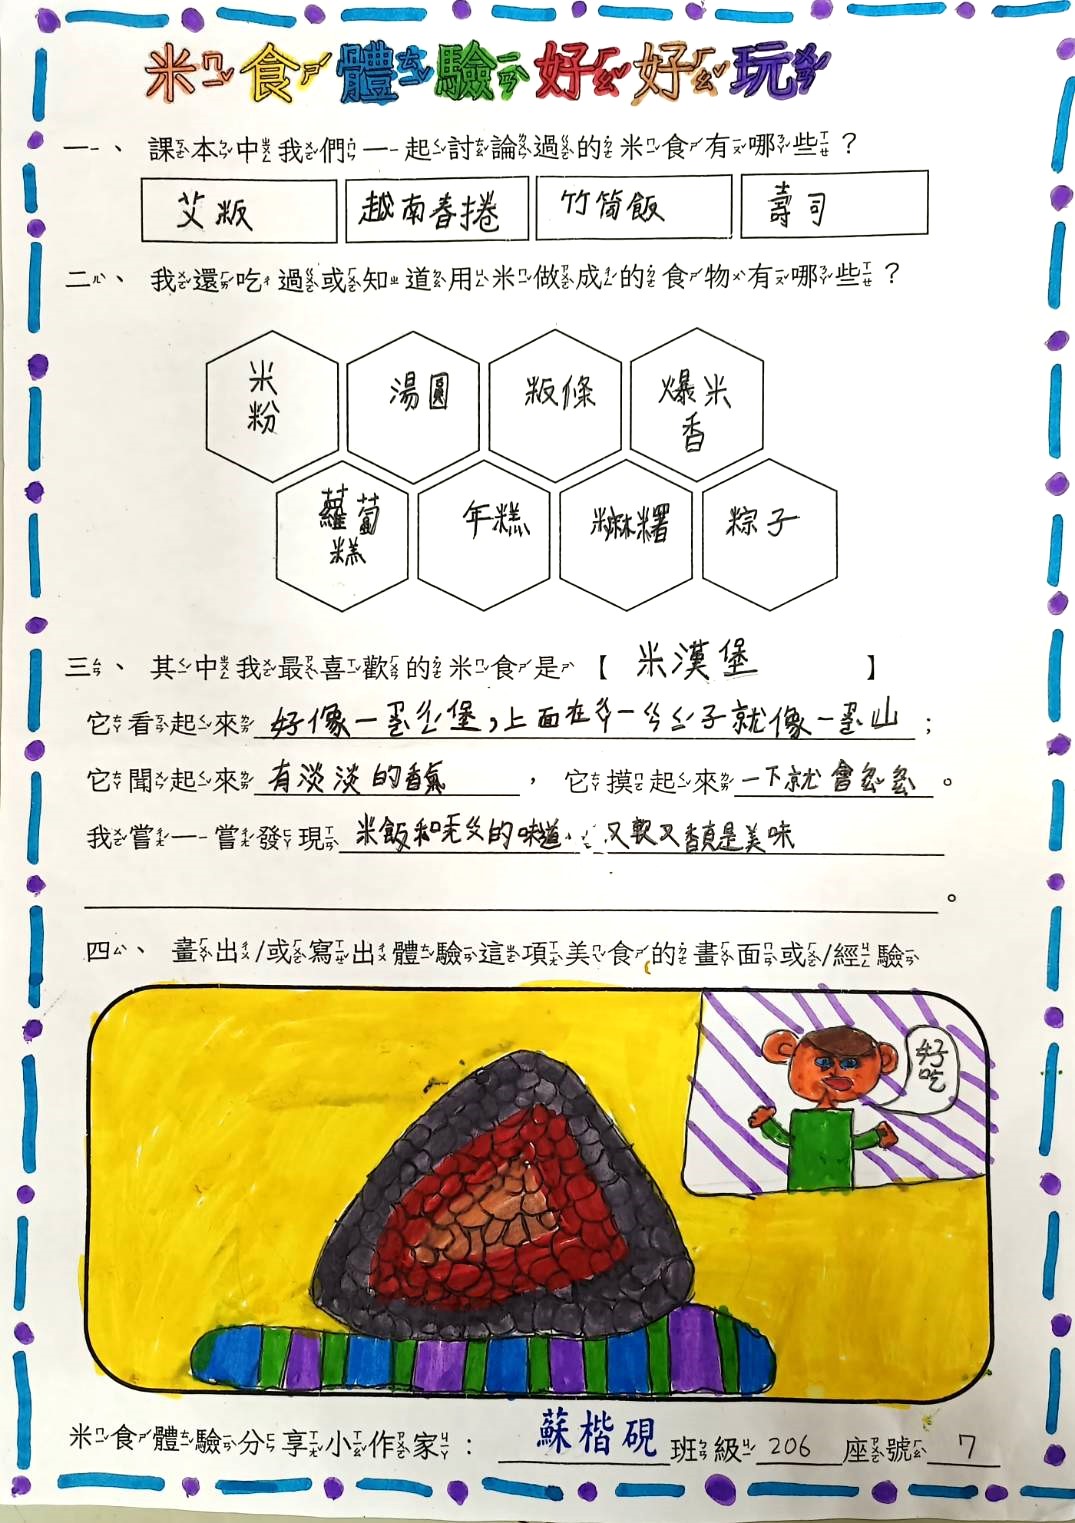 米ㄇㄧˇ食ㄕˊ體ㄊㄧˇ驗ㄧㄢˋ好ㄏㄠˇ好ㄏㄠˇ玩ㄨㄢˊ
一、課本中我們一起討論過的米食有哪些？
艾粄 越南春捲 竹筒飯 壽司
二、我還吃過或知道用米做成的食物有哪些？
米粉 湯圓 粄條 爆米香
蘿蔔糕 年糕 麻糬 粽子
三、其中我最喜歡的米食是【 米漢堡 】
它看起來好像一ㄓㄨㄛˋ堡，上面在ㄗˋ一ㄘㄥˊ子就像一ㄓㄨㄛˋ山；
它聞起來有淡淡的香氣，它摸起來一下就會
我嘗一嘗發現米飯和的味道 又軟又香真是美味
。
四、畫出/或寫出體驗這項美食的畫面或/經驗
好吃
米食體驗分享小作家：蘇楷硯班級206座號7